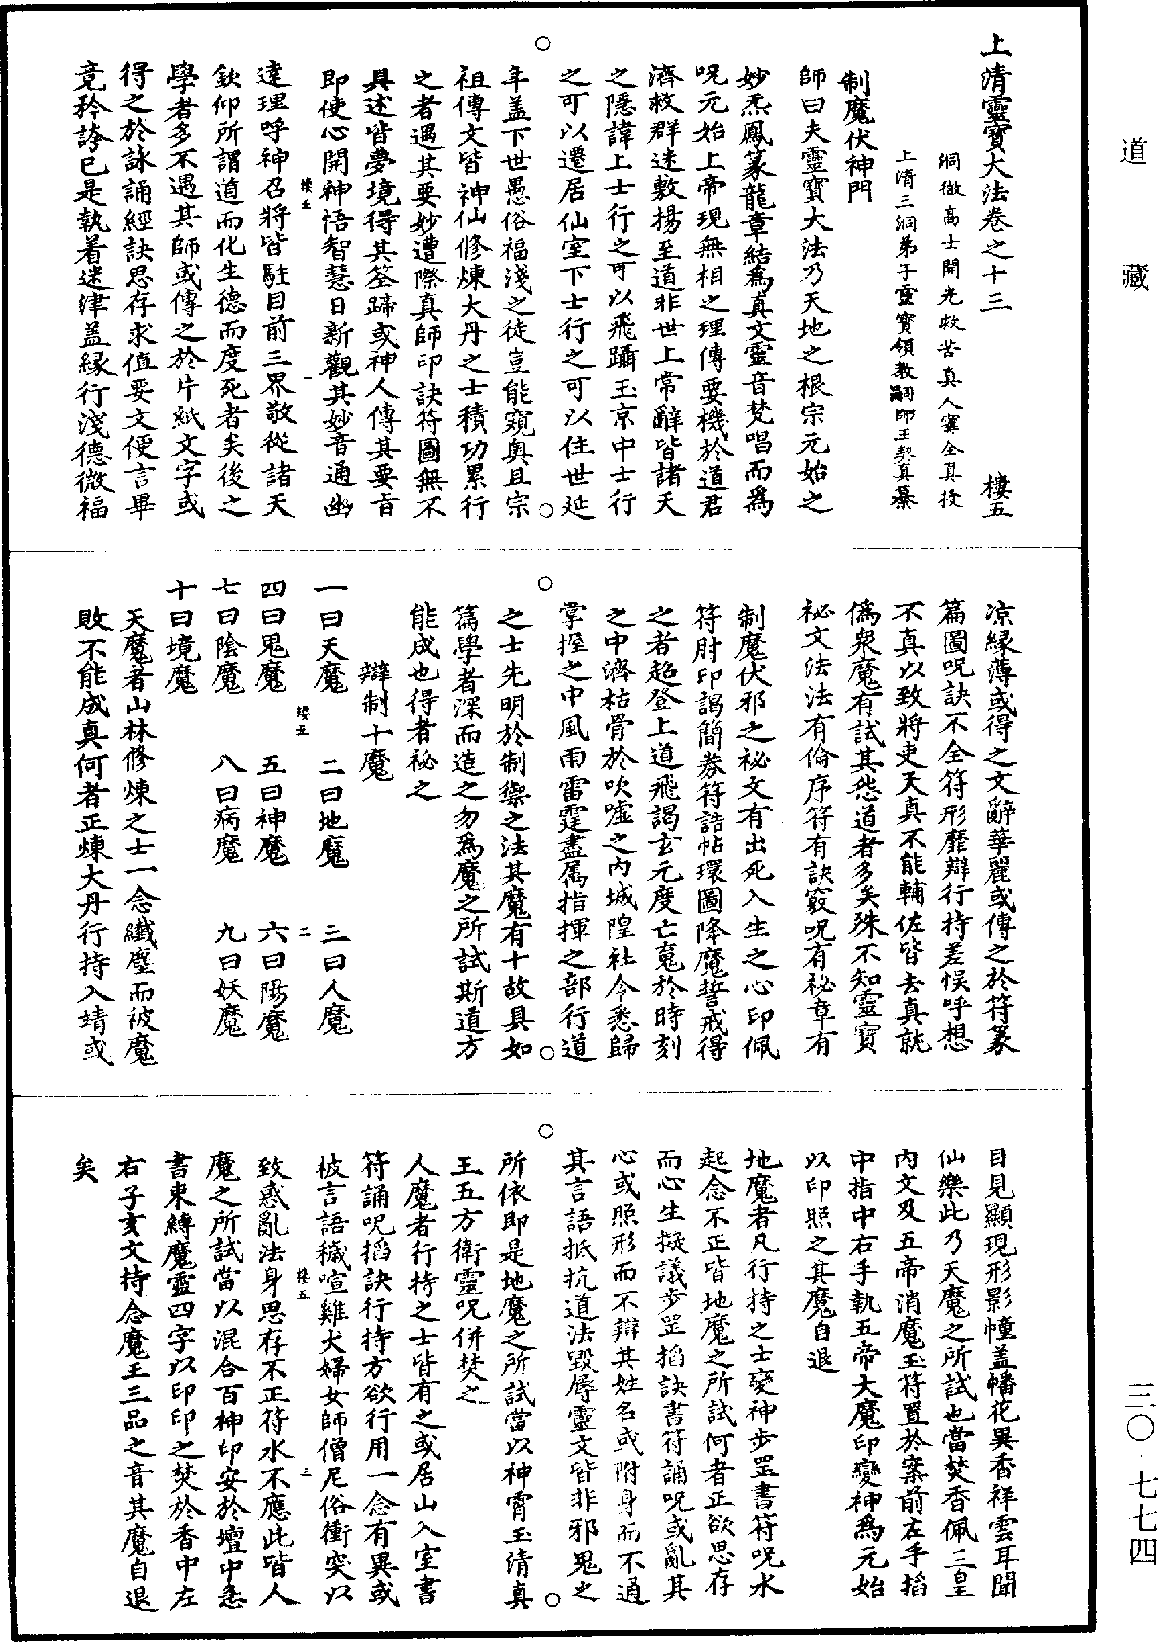 道藏
三〇·七七四
上清靈寶大法卷之十三　樓五
洞微高士開光救苦真人甯全真授
上清三洞弟子靈寶領教嗣師王契真纂
制魔伏神門
師曰夫靈寶大法乃天地之根宗元始之
妙炁鳳篆龍章結為真文靈音梵唱而為
呪元始上帝現無相之理傳要機於道君
濟救群迷敷揚至道非世上常辭皆諸天
之隱諱上士行之可以飛躡玉京中士行
之可以遷居仙室下士行之可以住世延
年盖下世愚俗福淺之徒豈能窺奧且宗
祖傳文皆神仙修煉大丹之士積功累行
之者遇其要妙遭際真師印訣符圖無不
具述皆夢境得其筌蹄或神人傳其要旨
即使心開神悟智慧日新觀其妙音通幽
樓五　一
達理呼神召將皆駐目前三界敬從諸天
欽仰所謂道而化生德而度死者矣後之
學者多不遇其師或傳之於片紙文字或
得之於詠誦經訣思存求值要文便言畢
竟矜誇已是執着迷津盖緣行淺德微福
凉緣薄或得之文辭華麗或傳之於符篆
篇圖呪訣不全符形靡辯行持差悮呼想
不真以致將吏天真不能輔佐皆去真就
偽衆魔有試其愆道者多矣殊不知靈寶
祕文法法有倫序符有訣竅呪有祕章有
制魔伏邪之祕文有出死入生之心印佩
符肘印謁簡券符誥帖環圖降魔誓戒得
之者超登上道飛謁玄元度亡䰟於時刻
之中濟枯骨於吹噓之內城隍社令悉歸
掌握之中風雨雷霆盡屬指揮之部行道
之士先明於制禦之法其魔有十故具如
篇學者深而造之勿為魔之所試斯道方
能成也得者祕之
辯制十魔
一曰天魔　二曰地魔　三曰人魔
樓五　二
四曰鬼魔　五曰神魔　六曰陽魔
七曰陰魔　八曰病魔　九曰妖魔
十曰境魔
天魔者山林修煉之士一念纖塵而被魔
敗不能成真何者正煉大丹行持入靖或
目見顯現形影幢盖幡花異香祥雲耳聞
仙樂此乃天魔之所試也當焚香佩三皇
內文及五帝消魔玉符置於案前左手掐
中指中右手執五帝大魔印變神為元始
以印照之其魔自退
地魔者凡行持之士變神步罡書符呪水
起念不正皆地魔之所試何者正欲思存
而心生擬議步罡掐訣書符誦呪或亂其
心或照形而不辯其姓名或附身而不通
其言語抵抗道法毀辱靈文皆非邪鬼之
所依即是地魔之所試當以神霄玉清真
王五方衛靈呪併焚之
人魔者行持之士皆有之或居山入室書
符誦呪掐訣行持方欲行用一念有異或
被言語穢喧雞犬婦女師僧尼俗衝突以
樓五　三
致惑亂法身思存不正符水不應此皆人
魔之所試當以混合百神印安於壇中急
書東縛魔靈四字以印印之焚於香中左
右子亥文持念魔王三品之音其魔自退
矣